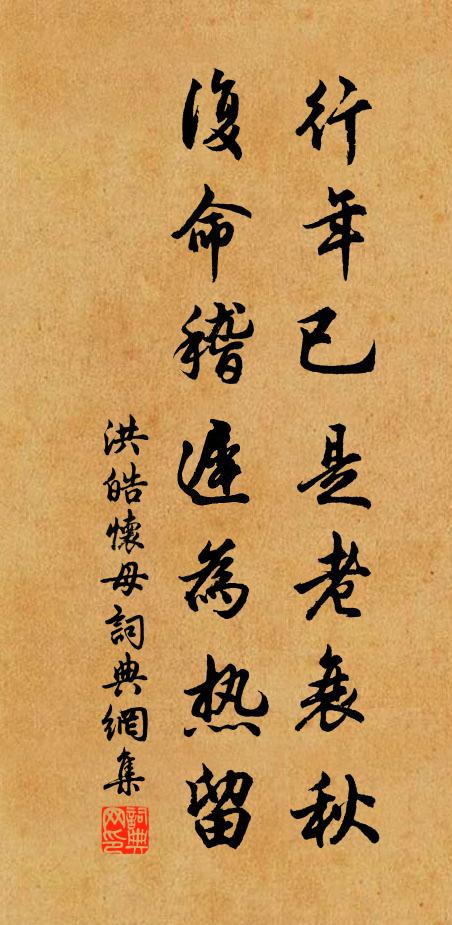 行年已是老衰秋
復命稽遲為热留
洪皓懷母詞典網集
詞典网印